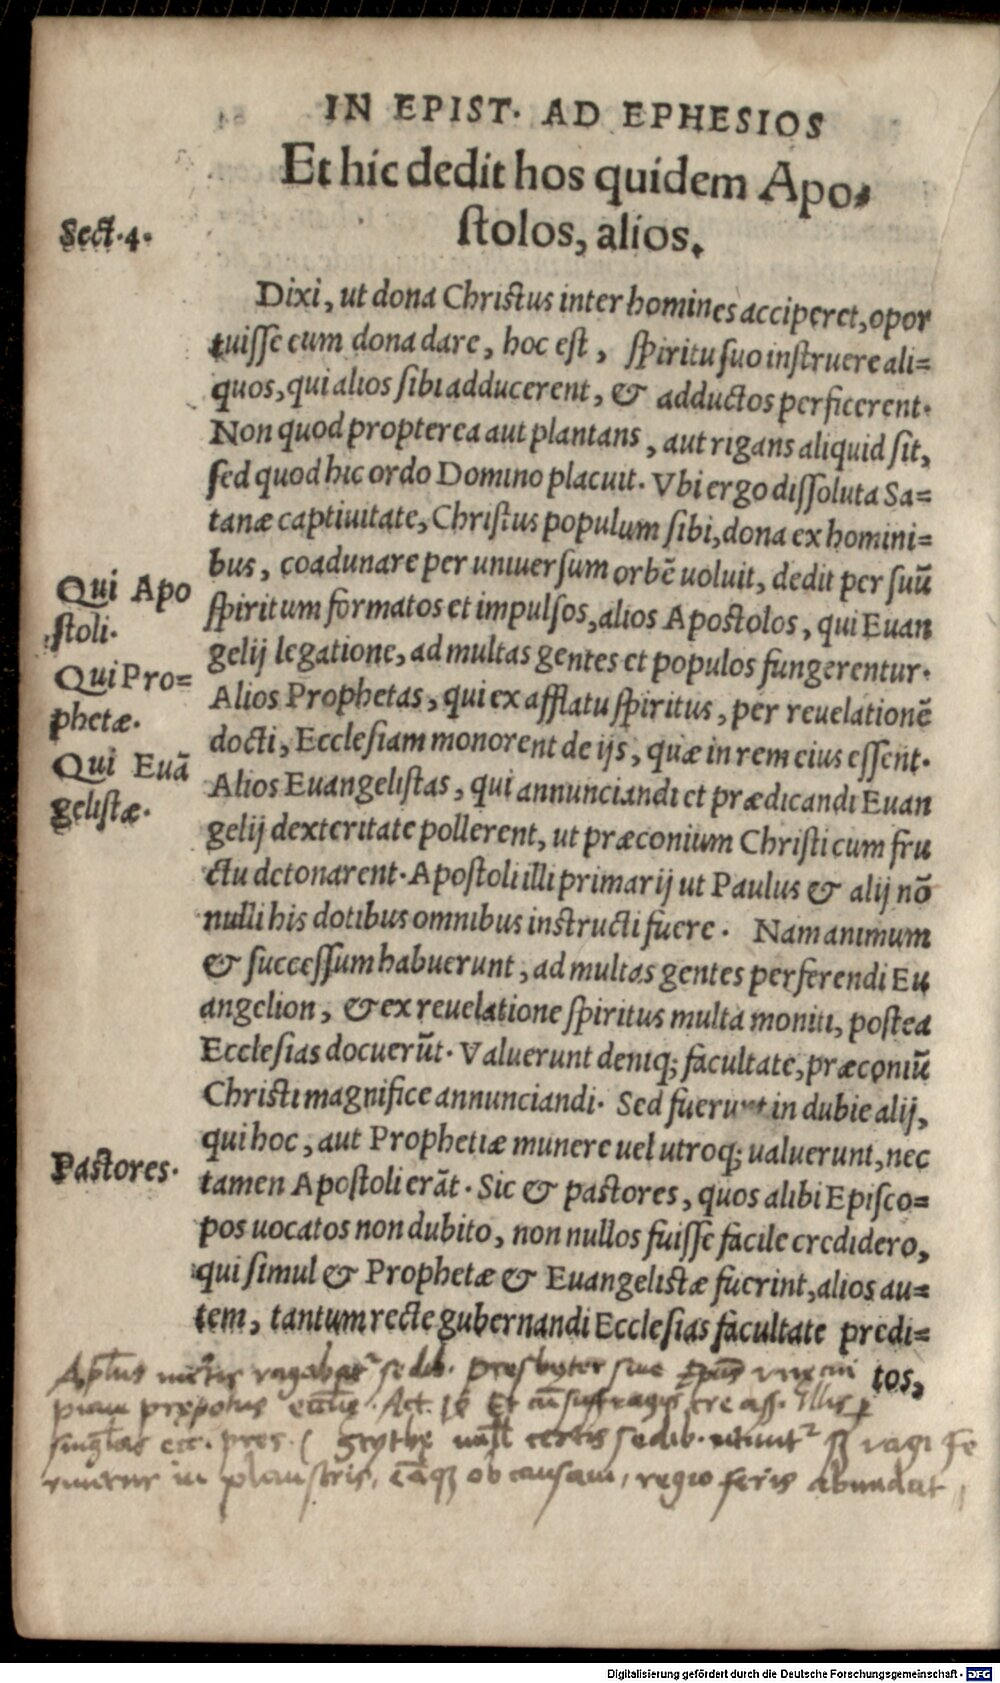 IN EPIST. AD EPHESIOS
Et hic dedit hos quidem Apo⸗
ſtolos, alios.
Sect. 4.
Dixi, ut dona Christus inter homines acciperet, opor
tuiſſe eum dona dare, hoc est, ſpiritu ſuo inſtruere ali=
quos, qui alios ſibi adducerent, & adductos perficerent.
Non quod propterea aut plantans, aut rigans aliquid ſit,
ſed quod hic ordo Domino placuit. Vbi ergo diſſoluta Sa=
tanæ captiuitate, Chriſtus populum ſibi, dona ex homini=
bus, coadunare per uniuerſum orbē uoluit, dedit per ſuū
Qui Apo
ſpiritum formatos et impulſos, alios Apoſtolos, qui Euan
ſtoli.
gelij legatione, ad multas gentes et populos fungerentur.
Qui Pro=
Alios Prophetas, qui ex afflatu ſpiritus, per reuelationē
phetæ.
docti, Eccleſiam monorent de ijs, quæ in rem eius eſſent.
Qui Euā
Alios Euangeliſtas, qui annunciandi et prædicandi Euan
geliſtæ.
gelij dexteritate pollerent, ut præconium Chriſti cum fru
ctu detonarent. Apoſtoli illi primarij ut Paulus & alij nō
nulli his dotibus omnibus inſtructi fuere. Nam animum
& ſucceſſum habuerunt, ad multas gentes perferendi Eu
angelion, & ex reuelatione ſpiritus multa moniti, poſtea
Eccleſias docuerūt. Valuerunt deniq; facultate, præconiū
Chriſti magnifice annunciandi. Sed fuerunt indubie alij,
qui hoc, aut Prophetiæ munere uel utroq; ualuerunt, nec
Paſtores.
tamen Apoſtoli erāt. Sic & paſtores, quos alibi Epiſco=
pos uocatos non dubito, non nullos fuiſſe facile credidero,
qui ſimul & Prophetæ & Euangeliſtæ fuerint, alios au=
tem, tantum recte gubernandi Eccleſias facultate predi=
tos,
sedib. presbyter siue
Act. Et
Scythę certis sedib. vagi fe
runtur in plaustris, ob causam, regio feris abundat